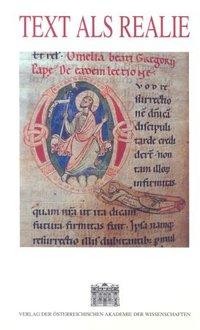 TEXT ALS REALIE
Omelia beati Gregorii
pape De eadem lectione
resurrectio
ne
discipuli
tarde credi
derunt non
infirmitas
quam ut ita dicam
futura firmitas fuit. Ipsa namq;
resurrectio illis dubitantibus
VERLAG DER ÖSTERREICHISCHEN AKADEMIE DER WISSENSCHAFTEN